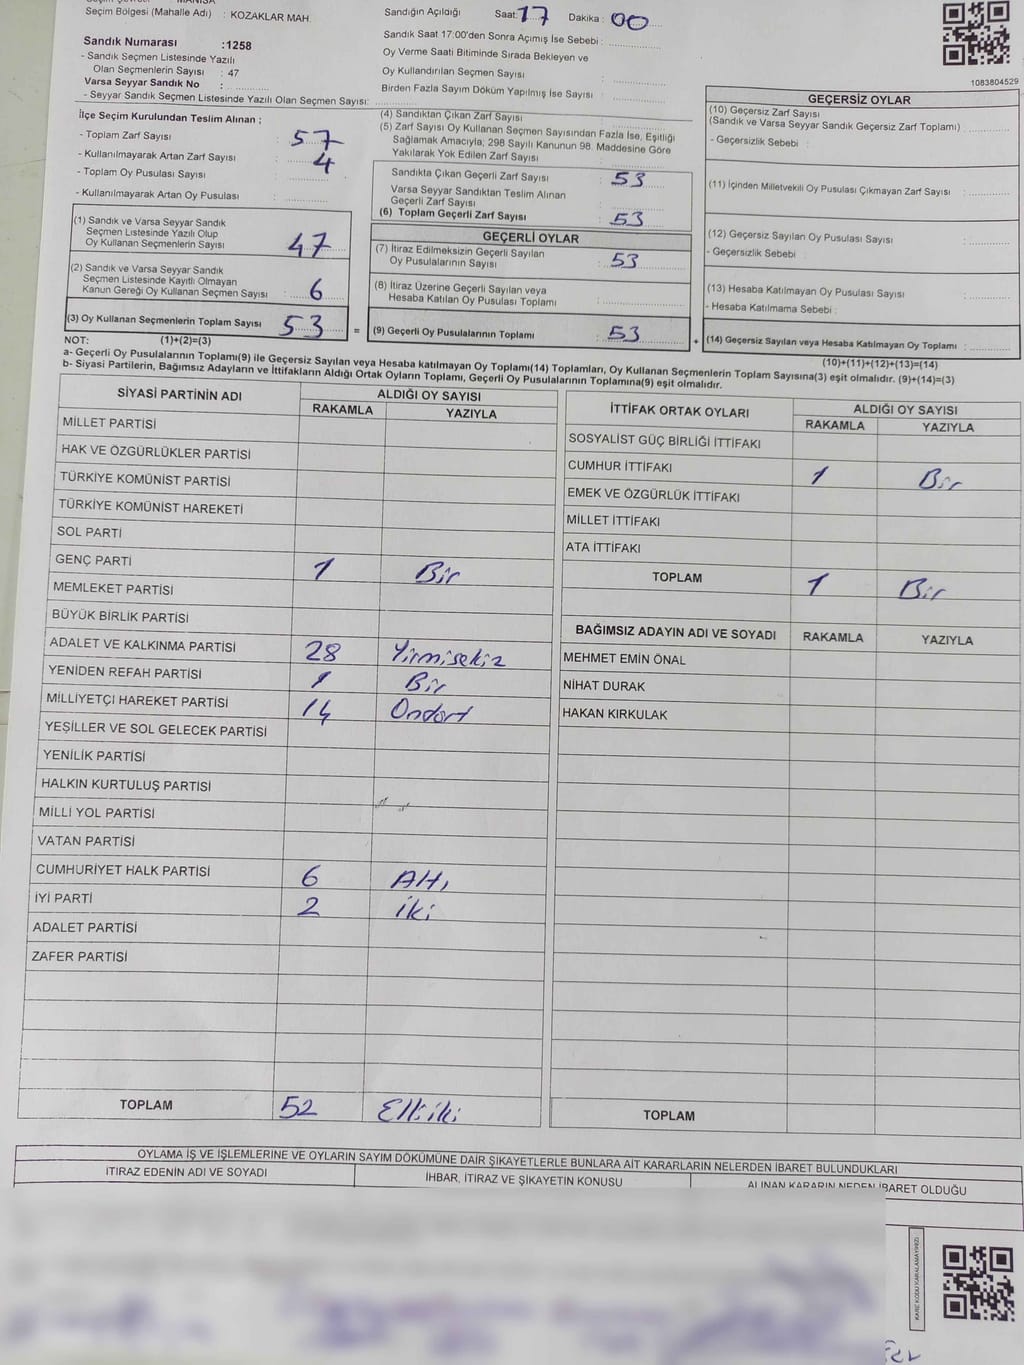 MANİSA
Seçim Bölgesi (Mahalle Adı) : KOZAKLAR MAH.
Sandık Numarası :1258
- Sandık Seçmen Listesinde Yazılı
Olan Seçmenlerin Sayısı : 47
Varsa Seyyar Sandık No :
- Seyyar Sandık Seçmen Listesinde Yazılı Olan Seçmen Sayısı:
Sandığın Açıldığı Saat: 17 Dakika : 00
Sandık Saat 17:00'den Sonra Açımış İse Sebebi :
Oy Verme Saati Bitiminde Sırada Bekleyen ve
Oy Kullandırılan Seçmen Sayısı :
Birden Fazla Sayım Döküm Yapılmış İse Sayısı :
1083804529
İlçe Seçim Kurulundan Teslim Alınan ;
- Toplam Zarf Sayısı : 57
- Kullanılmayarak Artan Zarf Sayısı : 4
- Toplam Oy Pusulası Sayısı :
- Kullanılmayarak Artan Oy Pusulası :
(1) Sandık ve Varsa Seyyar Sandık
Seçmen Listesinde Yazılı Olup
Oy Kullanan Seçmenlerin Sayısı : 47
(2) Sandık ve Varsa Seyyar Sandık
Seçmen Listesinde Kayıtlı Olmayan
Kanun Gereği Oy Kullanan Seçmen Sayısı : 6
(3) Oy Kullanan Seçmenlerin Toplam Sayısı : 53
(4) Sandıktan Çıkan Zarf Sayısı :
(5) Zarf Sayısı Oy Kullanan Seçmen Sayısından Fazla İse, Eşitliği
Sağlamak Amacıyla; 298 Sayılı Kanunun 98. Maddesine Göre
Yakılarak Yok Edilen Zarf Sayısı :
Sandıkta Çıkan Geçerli Zarf Sayısı : 53
Varsa Seyyar Sandıktan Teslim Alınan
Geçerli Zarf Sayısı :
(6) Toplam Geçerli Zarf Sayısı : 53
GEÇERLİ OYLAR
(7) İtiraz Edilmeksizin Geçerli Sayılan
Oy Pusulalarının Sayısı : 53
(8) İtiraz Üzerine Geçerli Sayılan veya
Hesaba Katılan Oy Pusulası Toplamı :
= (9) Geçerli Oy Pusulalarının Toplamı : 53 +
GEÇERSİZ OYLAR
(10) Geçersiz Zarf Sayısı
(Sandık ve Varsa Seyyar Sandık Geçersiz Zarf Toplamı) :
- Geçersizlik Sebebi :
(11) İçinden Milletvekili Oy Pusulası Çıkmayan Zarf Sayısı :
(12) Geçersiz Sayılan Oy Pusulası Sayısı :
- Geçersizlik Sebebi :
(13) Hesaba Katılmayan Oy Pusulası Sayısı :
- Hesaba Katılmama Sebebi :
(14) Geçersiz Sayılan veya Hesaba Katılmayan Oy Toplamı :
NOT: (1)+(2)=(3) (10)+(11)+(12)+(13)=(14)
a- Geçerli Oy Pusulalarının Toplamı(9) ile Geçersiz Sayılan veya Hesaba katılmayan Oy Toplamı(14) Toplamları, Oy Kullanan Seçmenlerin Toplam Sayısına(3) eşit olmalıdır. (9)+(14)=(3)
b- Siyasi Partilerin, Bağımsız Adayların ve İttifakların Aldığı Ortak Oyların Toplamı, Geçerli Oy Pusulalarının Toplamına(9) eşit olmalıdır.
SİYASİ PARTİNİN ADI ALDIĞI OY SAYISI
RAKAMLA YAZIYLA
MİLLET PARTİSİ
HAK VE ÖZGÜRLÜKLER PARTİSİ
TÜRKİYE KOMÜNİST PARTİSİ
TÜRKİYE KOMÜNİST HAREKETİ
SOL PARTİ
GENÇ PARTİ 1 Bir
MEMLEKET PARTİSİ
BÜYÜK BİRLİK PARTİSİ
ADALET VE KALKINMA PARTİSİ 28 Yirmisekiz
YENİDEN REFAH PARTİSİ 1 Bir
MİLLİYETÇİ HAREKET PARTİSİ 14 Ondört
YEŞİLLER VE SOL GELECEK PARTİSİ
YENİLİK PARTİSİ
HALKIN KURTULUŞ PARTİSİ
MİLLİ YOL PARTİSİ
VATAN PARTİSİ
CUMHURİYET HALK PARTİSİ 6 Altı
İYİ PARTİ 2 iki
ADALET PARTİSİ
ZAFER PARTİSİ
TOPLAM 52 Elliiki
İTTİFAK ORTAK OYLARI ALDIĞI OY SAYISI
RAKAMLA YAZIYLA
SOSYALİST GÜÇ BİRLİĞİ İTTİFAKI
CUMHUR İTTİFAKI 1 Bir
EMEK VE ÖZGÜRLÜK İTTİFAKI
MİLLET İTTİFAKI
ATA İTTİFAKI
TOPLAM 1 Bir
BAĞIMSIZ ADAYIN ADI VE SOYADI RAKAMLA YAZIYLA
MEHMET EMİN ÖNAL
NİHAT DURAK
HAKAN KIRKULAK
TOPLAM
OYLAMA İŞ VE İŞLEMLERİNE VE OYLARIN SAYIM DÖKÜMÜNE DAİR ŞİKAYETLERLE BUNLARA AİT KARARLARIN NELERDEN İBARET BULUNDUKLARI
İTİRAZ EDENİN ADI VE SOYADI İHBAR, İTİRAZ VE ŞİKAYETİN KONUSU ALINAN KARARIN NEDEN İBARET OLDUĞU
KARE KODU KARALAMAYINIZ!